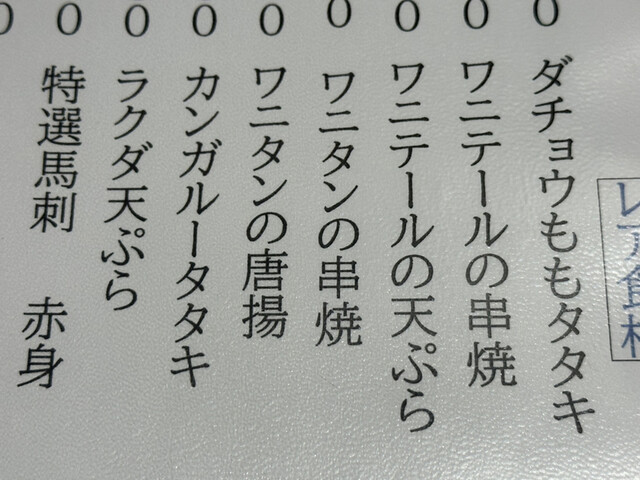 レア食材
0 ダチョウももタタキ
0 ワニテールの串焼
0 ワニテールの天ぷら
0 ワニタンの串焼
0 ワニタンの唐揚
0 カンガルータタキ
0 ラクダ天ぷら
0 特選馬刺 赤身
0